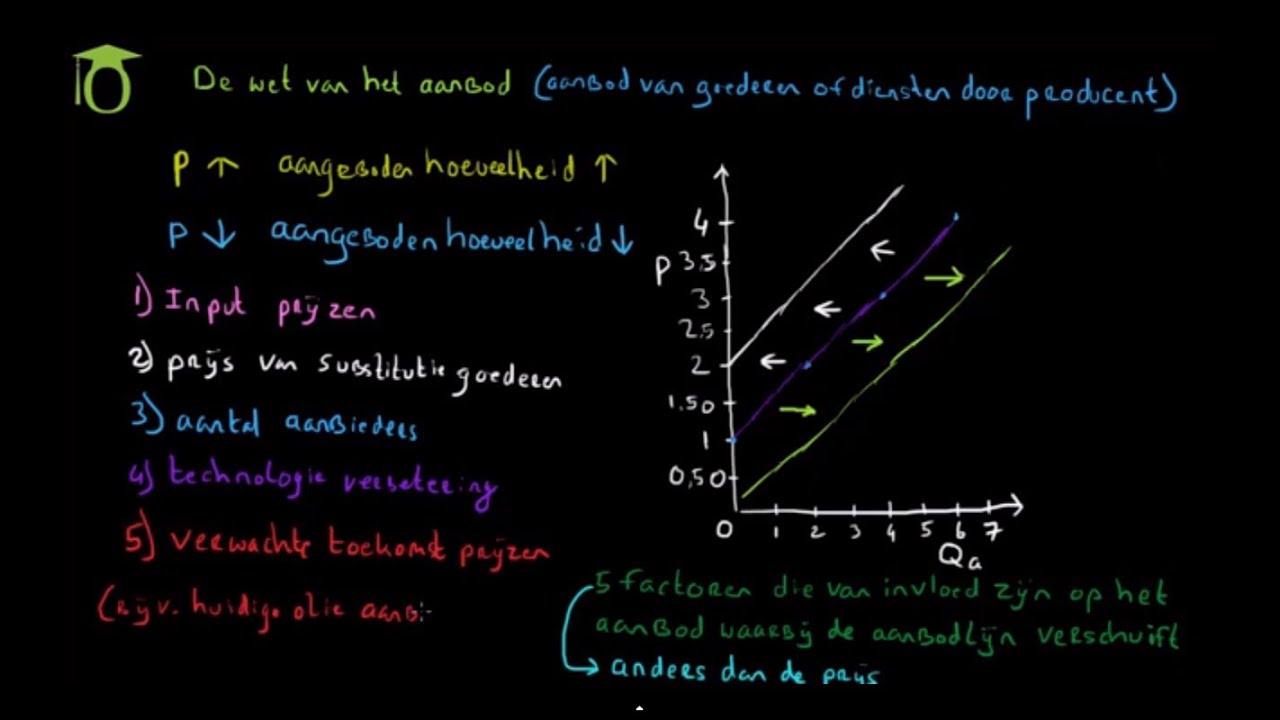 De wet van het aanbod (aanbod van goederen of diensten door producent)
P ↑ aangeboden hoeveelheid ↑
P ↓ aangeboden hoeveelheid ↓
1) Input prijzen
2) prijs van substitutie goederen
3) aantal aanbieders
4) technologie verbetering
5) verwachte toekomst prijzen
(Bijv. huidige olie aanb
P
4
3,5
3
2.5
2
1,50
1
0,50
0 1 2 3 4 5 6 7
Qa
5 factoren die van invloed zijn op het
aanbod waarbij de aanbodlijn verschuift
anders dan de prijs